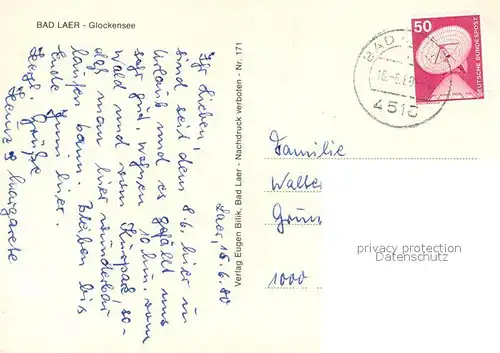 BAD LAER - Glockensee
Laer, 15.6.80
Ihr Lieben,
sind seit dem 8.6. hier in
Urlaub und es gefällt uns
sehr gut, wohnen 10 km. vom
Wald und vom Kurpark, so-
daß man hier wunderbar
laufen kann. Bleiben bis
Ende Juni hier.
Herzl. Grüße
Heinz & Margarete
Verlag Eugen Bitik, Bad Laer - Nachdruck verboten - Nr. 171
BAD
4518
50
DEUTSCHE BUNDESPOST
Familie
Walter
1000
privacy protection
Datenschutz